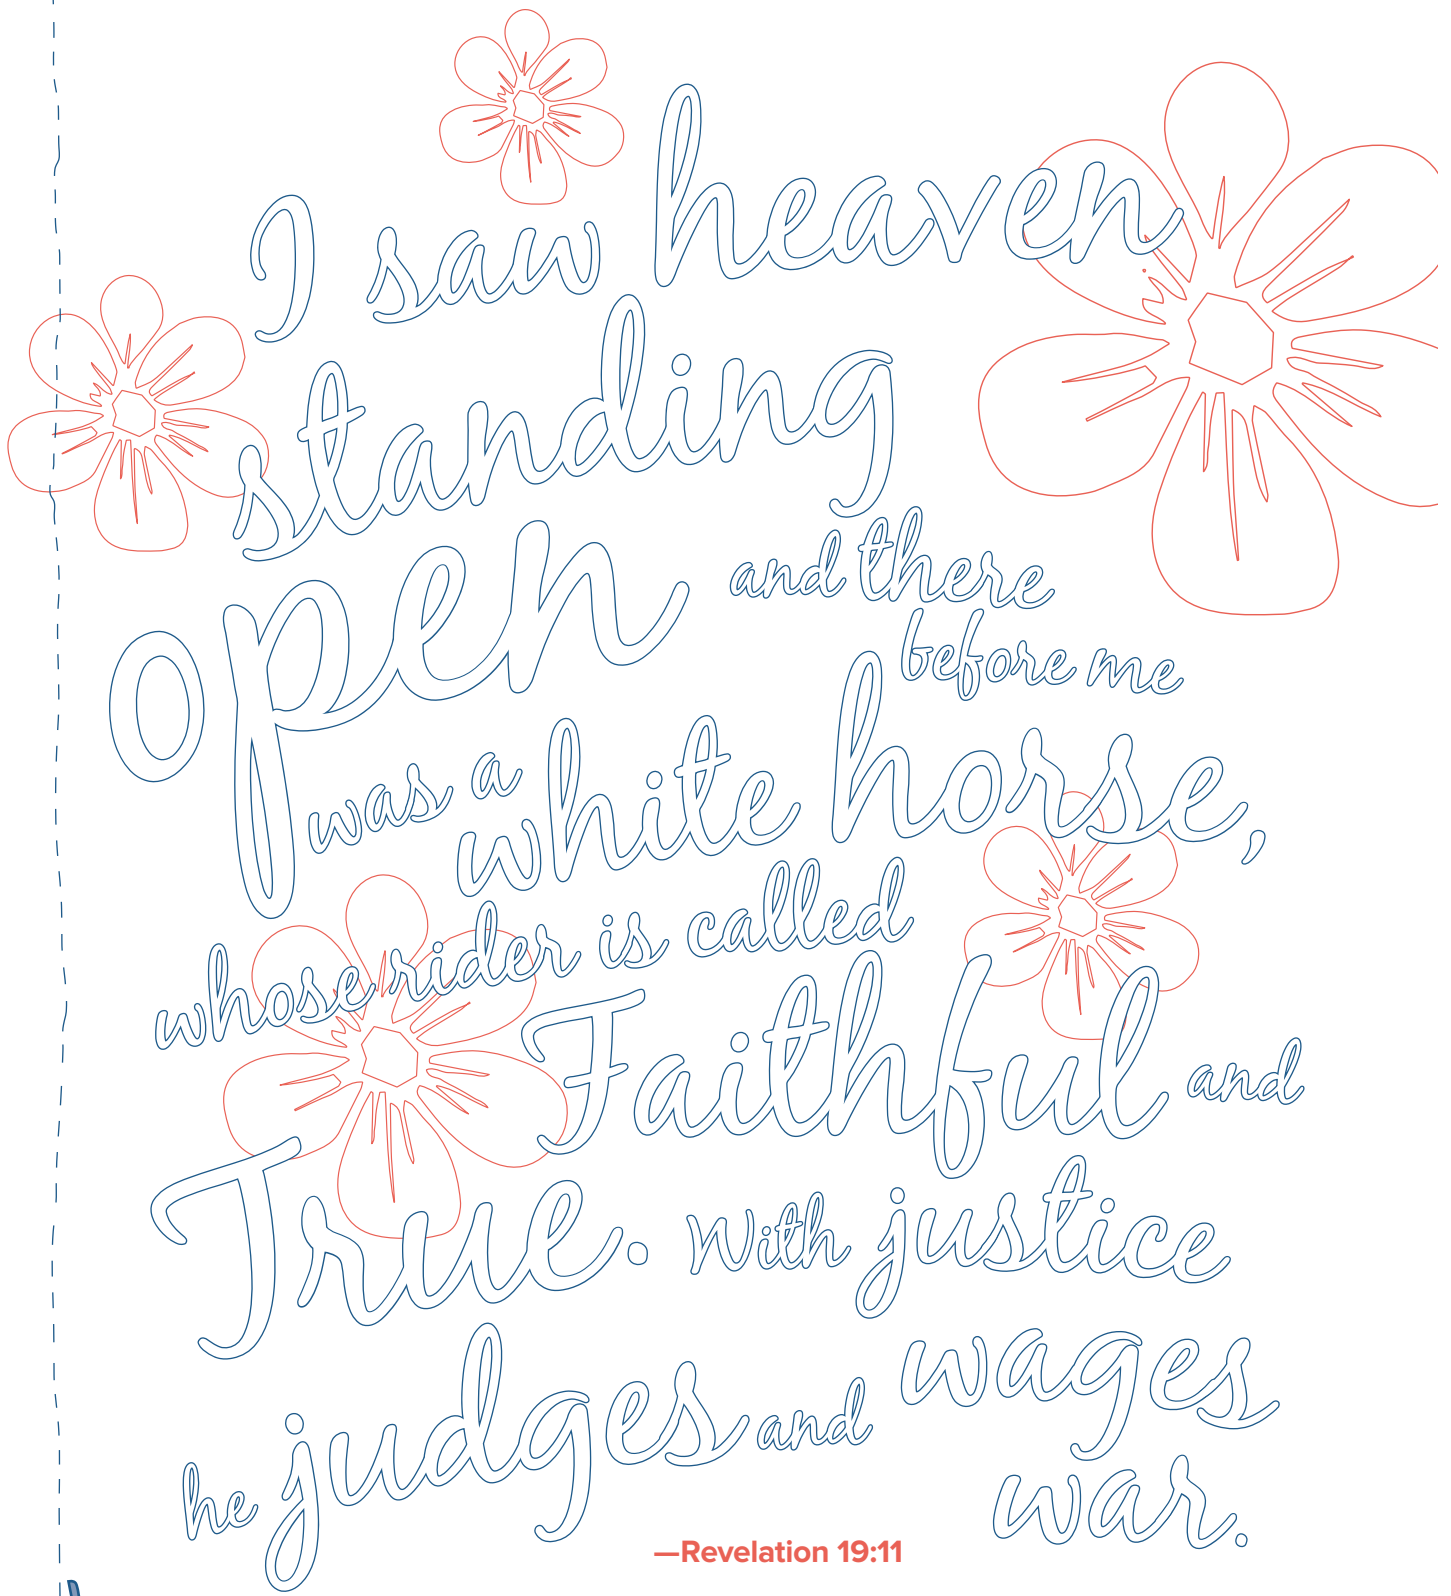 I saw heaven
standing
open and there
before me
was a white horse,
whose rider is called
Faithful and
True. With justice
he judges and wages
war.
—Revelation 19:11